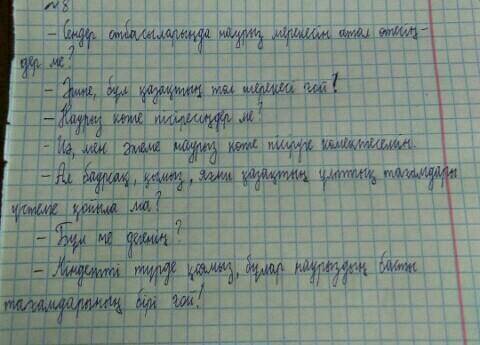 №8
- Сендер отбасыларыңда наурыз мерекесін атап өтесің-
дер ме?
- Әрине, бұл қазақтың төл мерекесі ғой!
- Наурыз көже пісіресіңдер ме?
- Иә, мен әжеме наурыз көже пісіруге көмектесемін.
- Ал бауырсақ, қымыз, яғни қазақтың ұлттық тағамдары
үстелге қойыла ма?
- Бұл не дегенің?
- Міндетті түрде қоямыз, бұлар наурыздың басты
тағамдарының бірі ғой!